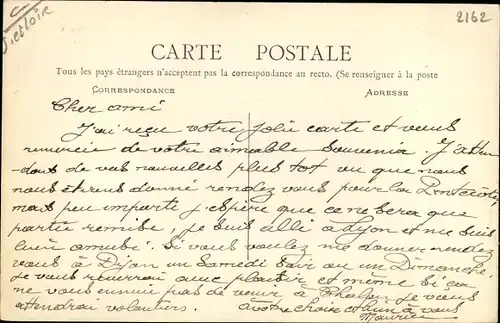 Victoir
2162
CARTE POSTALE
Tous les pays étrangers n'acceptent pas la correspondance au recto. (Se renseigner à la poste
CORRESPONDANCE
ADRESSE
Cher ami
J'ai reçu votre jolie carte et vous
remercie de votre aimable souvenir. J'atten
dais de vos nouvelles plus tot vu que nous
nous étions donné rendez vous pour la Pentecôte,
mais peu importe j'espère que ce ne sera que
partie remise, je suis allé à Lyon et me suis
bien amusé. Si vous voulez me donner rendez
vous à Dijon un Samedi soir ou un Dimanche,
je vous reverrai avec plaisir et même si ca
ne vous ennuie pas de venir à Chalon je vous
attendrai volontiers. a votre choix et bien à vous
Maurice